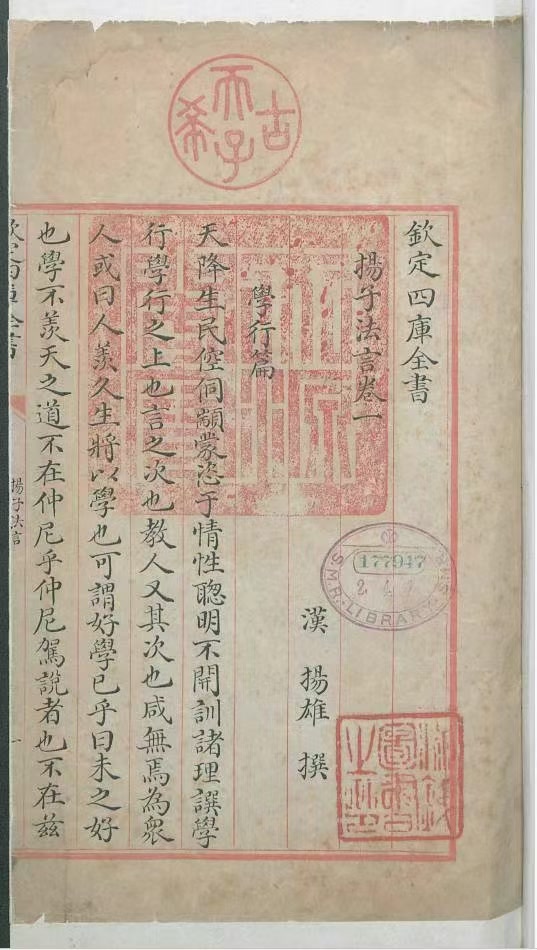 古希天子
欽定四庫全書
揚子法言卷一
漢 揚雄 撰
學行篇
天降生民倥侗顓蒙恣于情性聰明不開訓諸理譔學
行學行之上也言之次也教人又其次也咸無焉為衆
人或曰人羨久生將以學也可謂好學已乎曰未之好
也學不羨天之道不在仲尼乎仲尼駕說者也不在兹
揚子法言
一
177947
LIBRARY